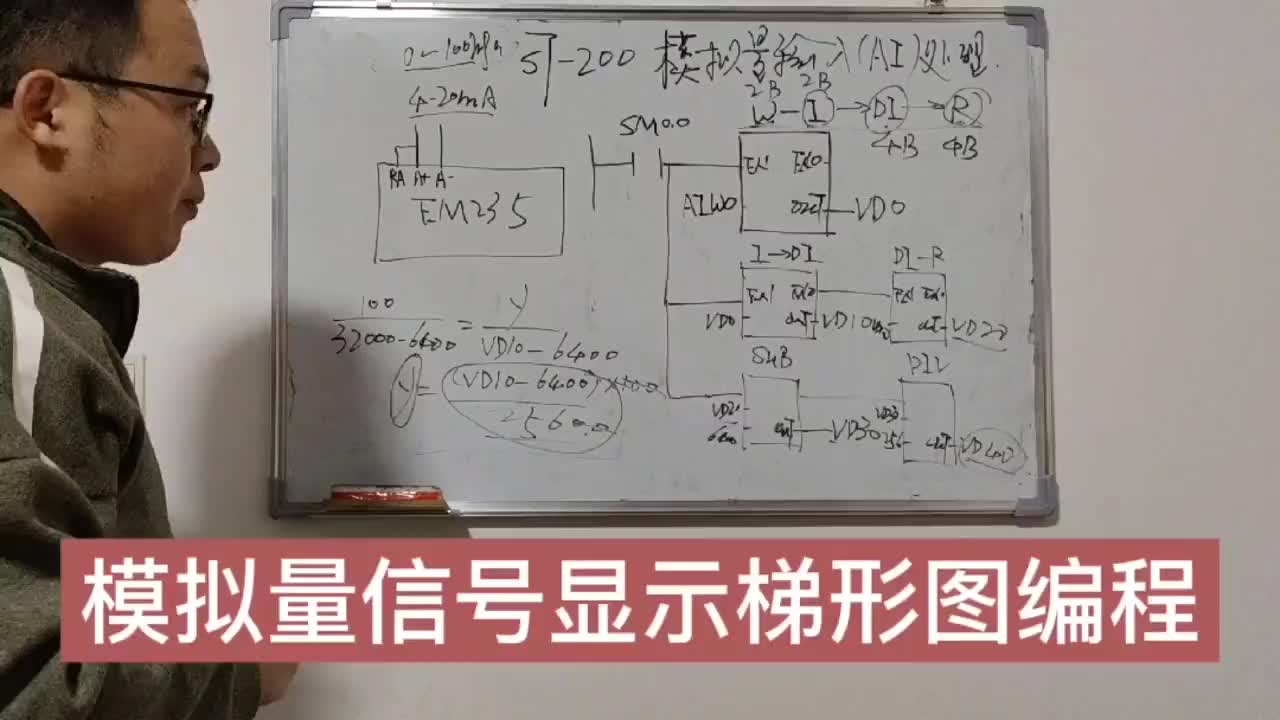 0~100Mpa
S7-200 模拟量输入(AI)处理.
4-20mA
2B 2B
W-I→DI→R
4B 4B
SM0.0
RA A+ A-
EM235
EN ENO
AIW0 OUT VD0
I→DI
DI-R
EN ENO EN ENO
VD0 OUT VD10 OUT VD20
100 / 32000-6400 = Y / VD10-6400
Y = (VD10-6400)×100 / 25600
SUB
DIV
VD20 VD30
6400 OUT VD30 256 OUT VD40
模拟量信号显示梯形图编程